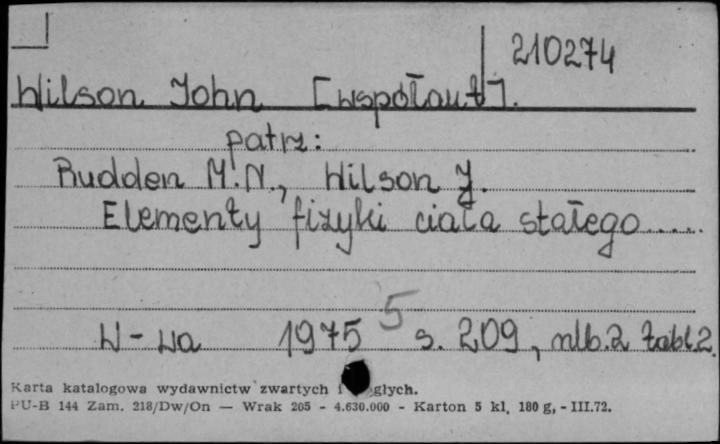 210274
Wilson John [współaut].
patrz:
Rudden M.N., Wilson J.
Elementy fizyki ciała stałego.....
5
W-wa 1975 s. 209, nlb.2 tabl.2.
Karta katalogowa wydawnictw zwartych i głych.
PU-B 144 Zam. 218/Dw/On — Wrak 205 - 4.630.000 - Karton 5 kl. 180 g, - III.72.